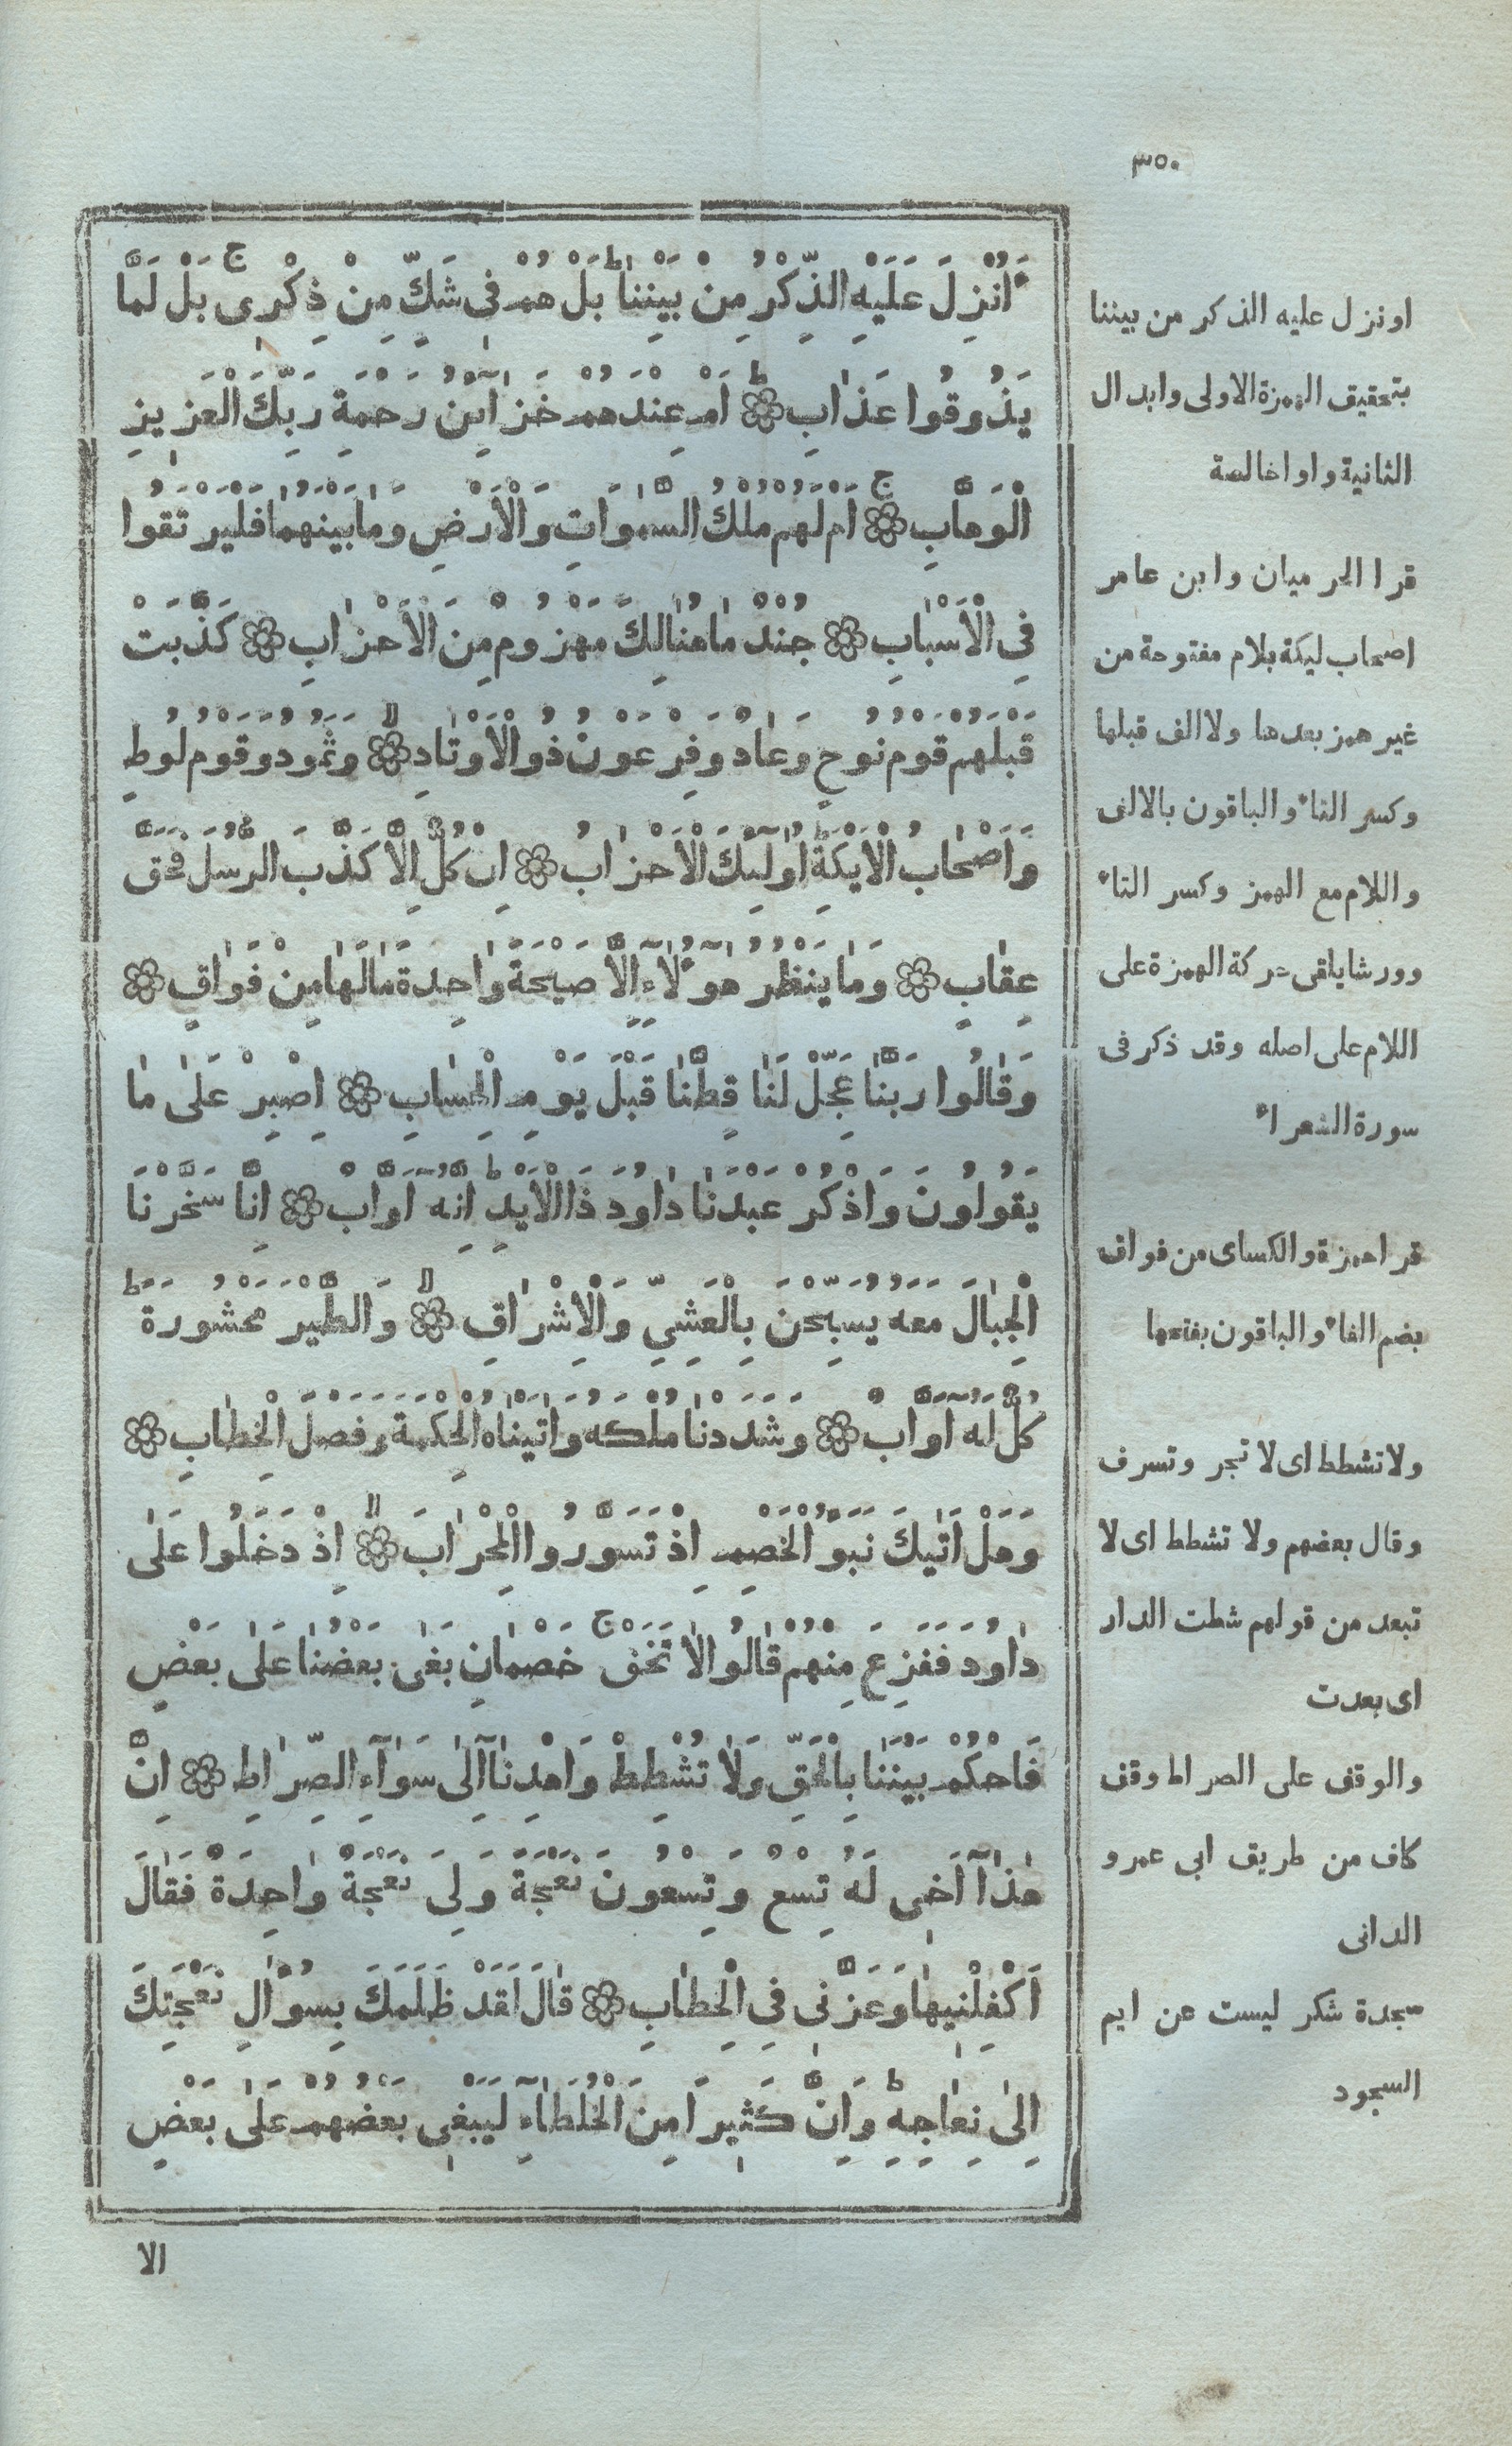 ٣٥٠
ءَاُنْزِلَ عَلَيْهِ الذِّكْرُ مِنْ بَيْنِنٰا ط بَلْ هُمْ فِى شَكٍّ مِنْ ذِكْرِى ج بَلْ لَمَّا
يَذُوقُوا عَذٰابِ ط اَمْ عِنْدَهُمْ خَزٰآئِنُ رَحْمَةِ رَبِّكَ الْعَزِيزِ
الْوَهَّابِ ج اَمْ لَهُمْ مُلْكُ السَّمٰوَاتِ وَالْاَرْضِ وَمٰا بَيْنَهُمٰا فَلْيَرْتَقُوا
فِى الْاَسْبٰابِ جُنْدٌ مٰا هُنٰالِكَ مَهْزُومٌ مِنَ الْاَحْزٰابِ كَذَّبَتْ
قَبْلَهُمْ قَوْمُ نُوحٍ وَعٰادٌ وَفِرْعَوْنُ ذُو الْاَوْتٰادِ لا وَثَمُودُ وَقَوْمُ لُوطٍ
وَاَصْحٰابُ الْاَيْكَةِ ط اُولٰٓئِكَ الْاَحْزٰابُ اِنْ كُلٌّ اِلَّا كَذَّبَ الرُّسُلَ فَحَقَّ
عِقٰابِ وَمٰا يَنْظُرُ هٰٓؤُلَآءِ اِلَّا صَيْحَةً وٰاحِدَةً مٰا لَهٰا مِنْ فَوٰاقٍ
وَقٰالُوا رَبَّنٰا عَجِّلْ لَنٰا قِطَّنٰا قَبْلَ يَوْمِ الْحِسٰابِ اِصْبِرْ عَلٰى مٰا
يَقُولُونَ وَاذْكُرْ عَبْدَنٰا دٰاوُدَ ذَا الْاَيْدِ ط اِنَّهُ اَوَّابٌ اِنَّا سَخَّرْنَا
الْجِبٰالَ مَعَهُ يُسَبِّحْنَ بِالْعَشِىِّ وَالْاِشْرٰاقِ لا وَالطَّيْرَ مَحْشُورَةً ط
كُلٌّ لَهُ اَوَّابٌ وَشَدَدْنٰا مُلْكَهُ وَاٰتَيْنٰاهُ الْحِكْمَةَ وَفَصْلَ الْخِطٰابِ
وَهَلْ اَتٰيكَ نَبَؤُ الْخَصْمِ اِذْ تَسَوَّرُوا الْمِحْرٰابَ لا اِذْ دَخَلُوا عَلٰى
دٰاوُدَ فَفَزِعَ مِنْهُمْ قٰالُوا لٰا تَخَفْ ج خَصْمٰانِ بَغٰى بَعْضُنٰا عَلٰى بَعْضٍ
فَاحْكُمْ بَيْنَنٰا بِالْحَقِّ وَلٰا تُشْطِطْ وَاهْدِنٰآ اِلٰى سَوٰآءِ الصِّرٰاطِ اِنَّ
هٰذٰآ اَخِى لَهُ تِسْعٌ وَتِسْعُونَ نَعْجَةً وَلِىَ نَعْجَةٌ وٰاحِدَةٌ فَقٰالَ
اَكْفِلْنِيهٰا وَعَزَّنِى فِى الْخِطٰابِ قٰالَ لَقَدْ ظَلَمَكَ بِسُؤٰالِ نَعْجَتِكَ
اِلٰى نِعٰاجِهِ ط وَاِنَّ كَثِيرًا مِنَ الْخُلَطٰآءِ لَيَبْغِى بَعْضُهُمْ عَلٰى بَعْضٍ
الا
اونزل عليه الذكر من بيننا
بتحقيق الهمزة الاولى وابدال
الثانية واوا خالصة
قرا الحرميان وابن عامر
اصحاب ليكة بلام مفتوحة من
غير همز بعدها ولا الف قبلها
وكسر التاء والباقون بالالف
واللام مع الهمز وكسر التاء
وورشا يلقى حركة الهمزة على
اللام على اصله وقد ذكر فى
سورة الشعراء
قرا حمزة والكساى من فواق
بضم الفاء والباقون بفتحها
ولا تشطط اى لا تجر وتسرف
وقال بعضهم ولا تشطط اى لا
تبعد من قولهم شطت الدار
اى بعدت
والوقف على الصراط وقف
كاف من طريق ابى عمرو
الدانى
سجدة شكر ليست عن ايم
السجود